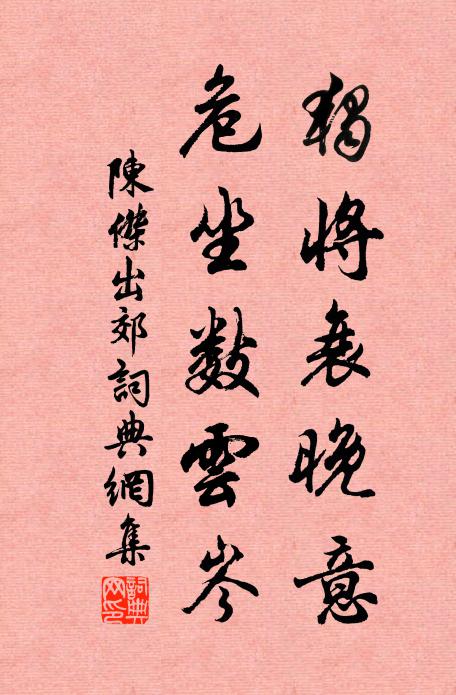 獨將衰晚意
危坐數雲岑
陳傑出郊詞典網集
詞典網印